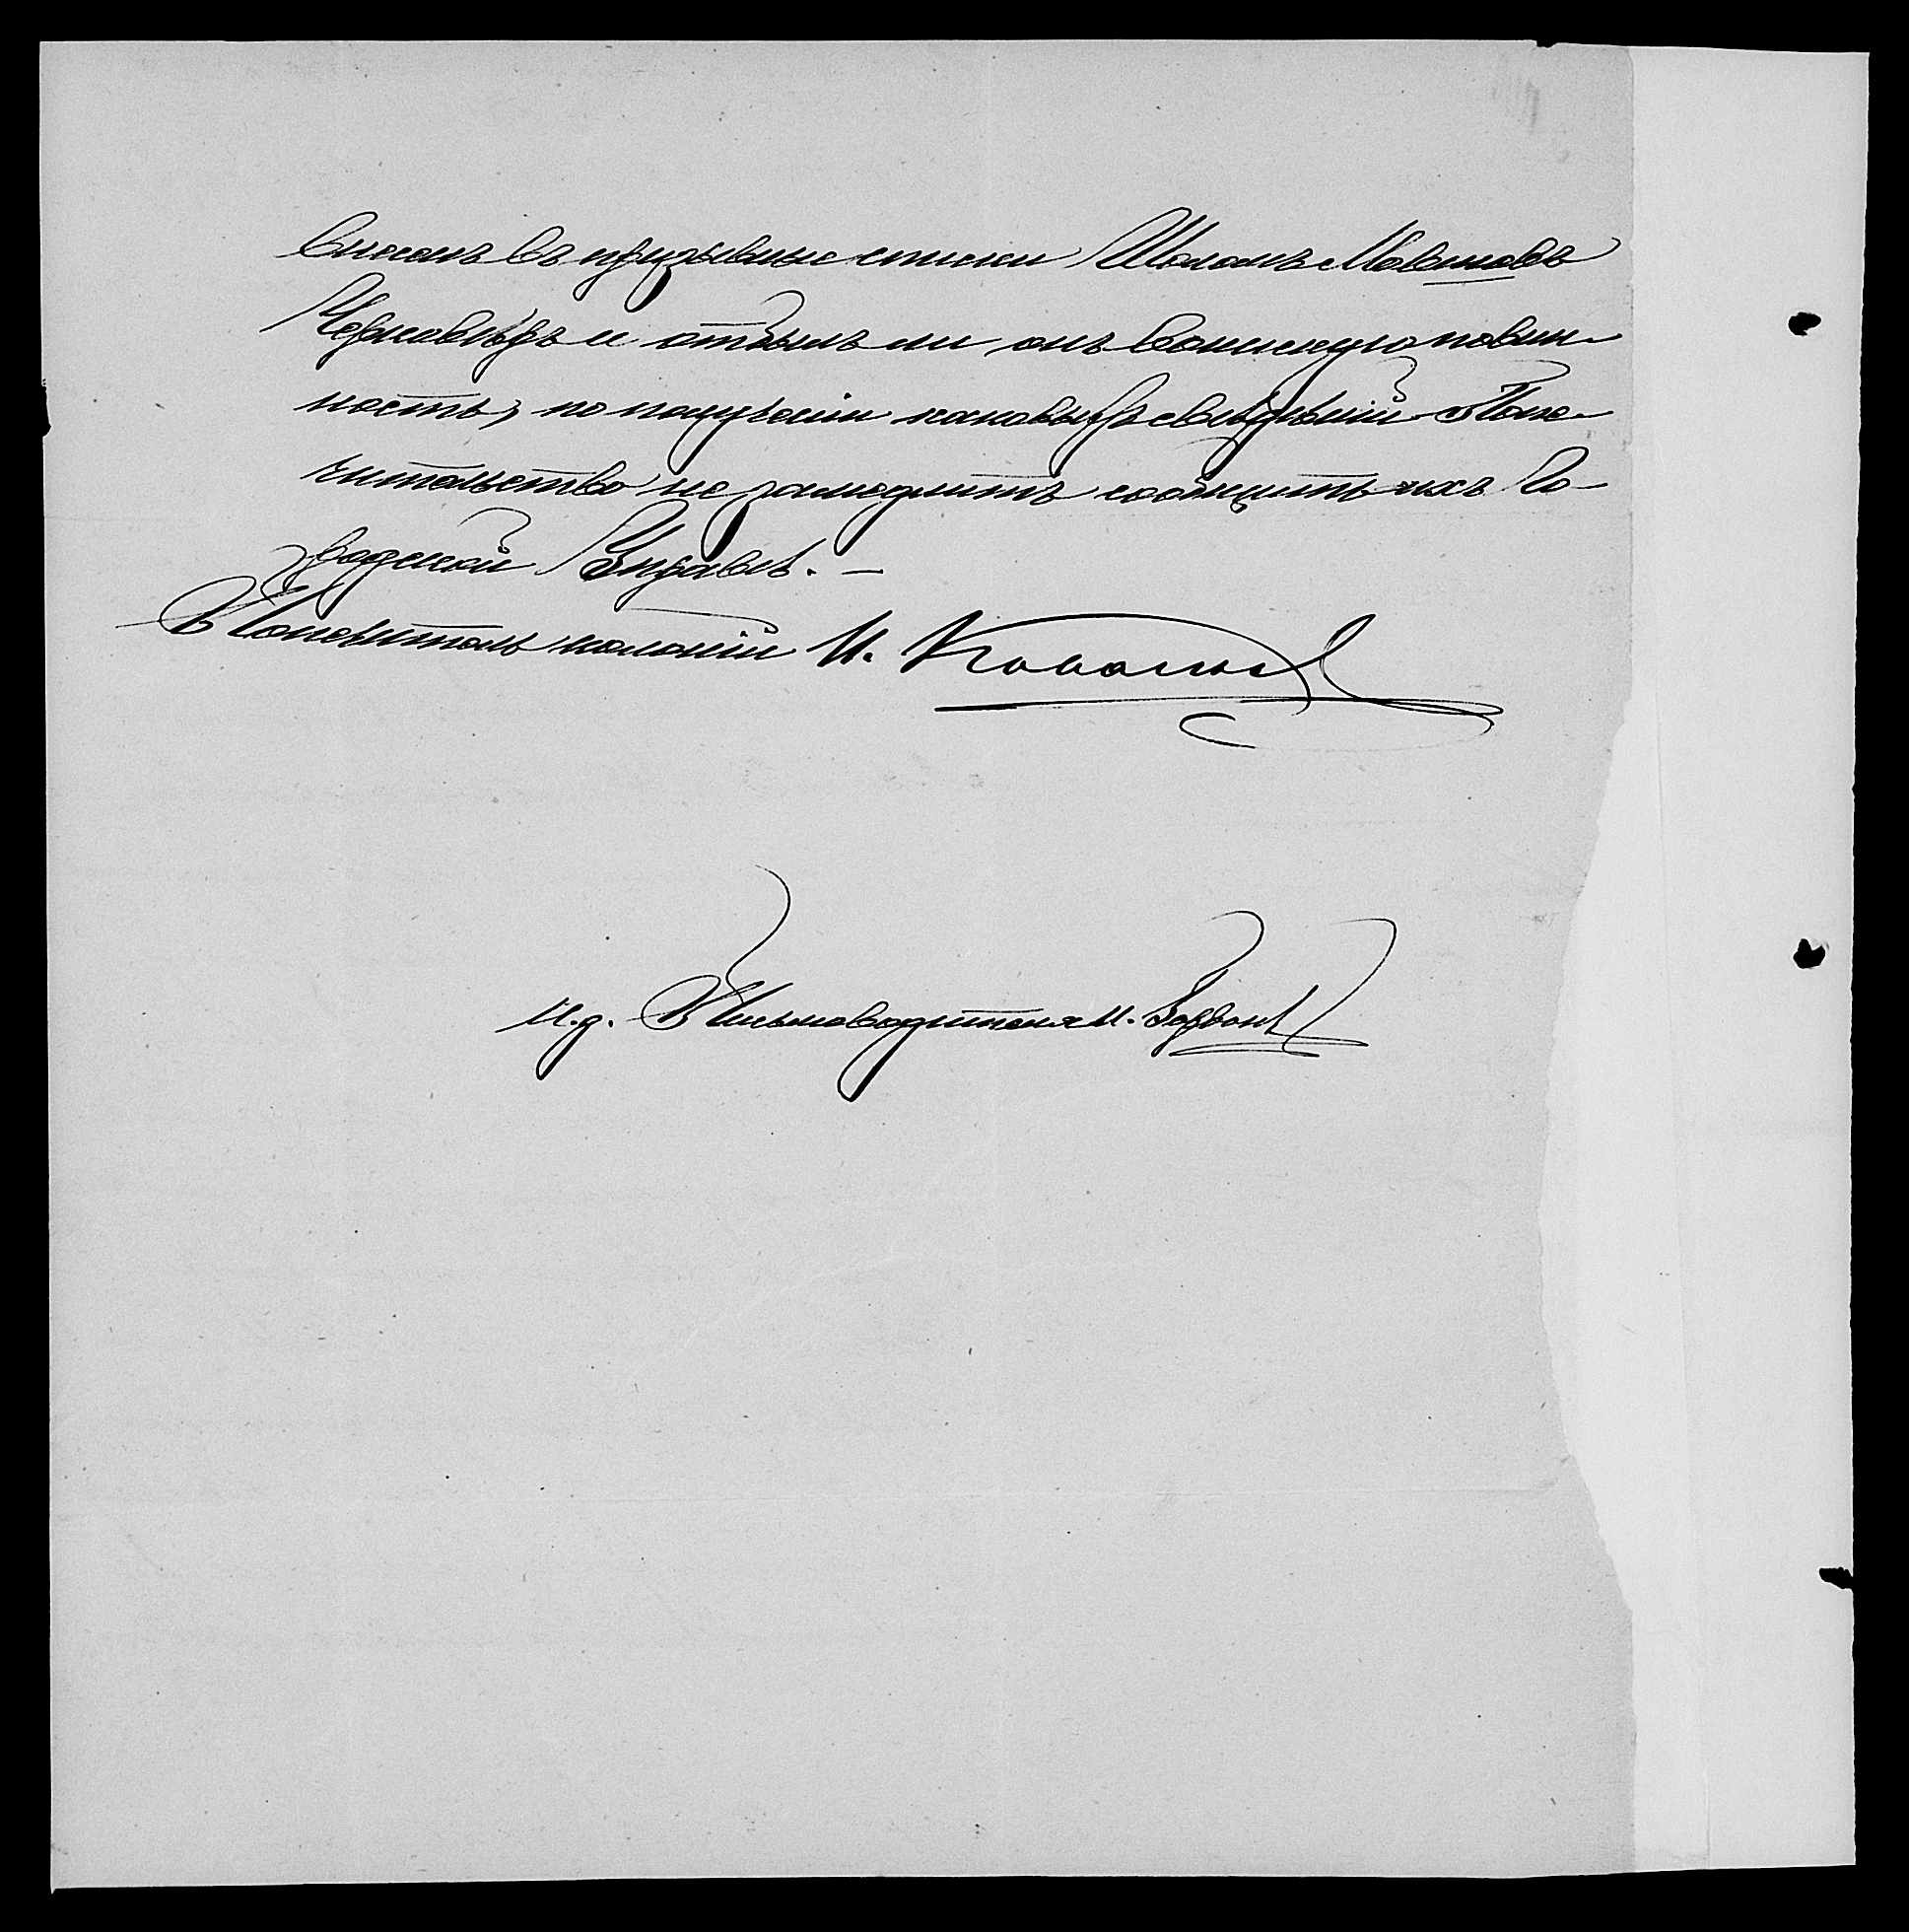 внесенъ въ призывные списки Шоломъ Мовшовъ
Черновъ и отбылъ ли онъ воинскую повин-
ность, по полученіи каковыхъ свѣдѣній Попе-
чительство не замедлитъ сообщить ихъ Го-
родской Управѣ. —
Попечитель колоній И. Ковальс
И. д. Письмоводителя И.